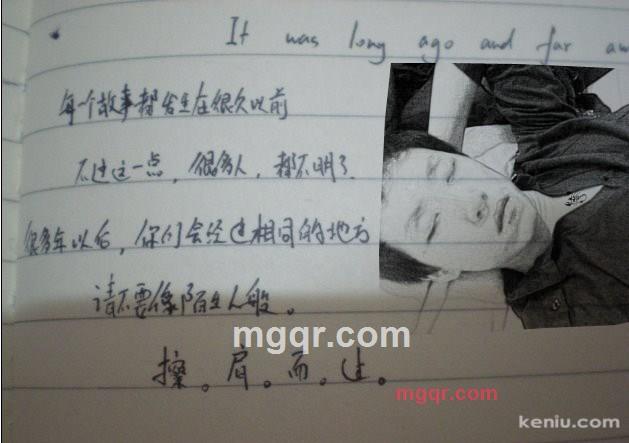 It was long ago and far aw
每个故事都发生在很久以前
不过这一点，很多人，都不明了.
很多年以后，你们会经过相同的地方
请不要像陌生人般。
擦。肩。而。过。
mgqr.com
mgqr.com
keniu.com